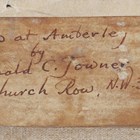 at Amberley
by
ald C. Towner
hurch Row, N.W.3